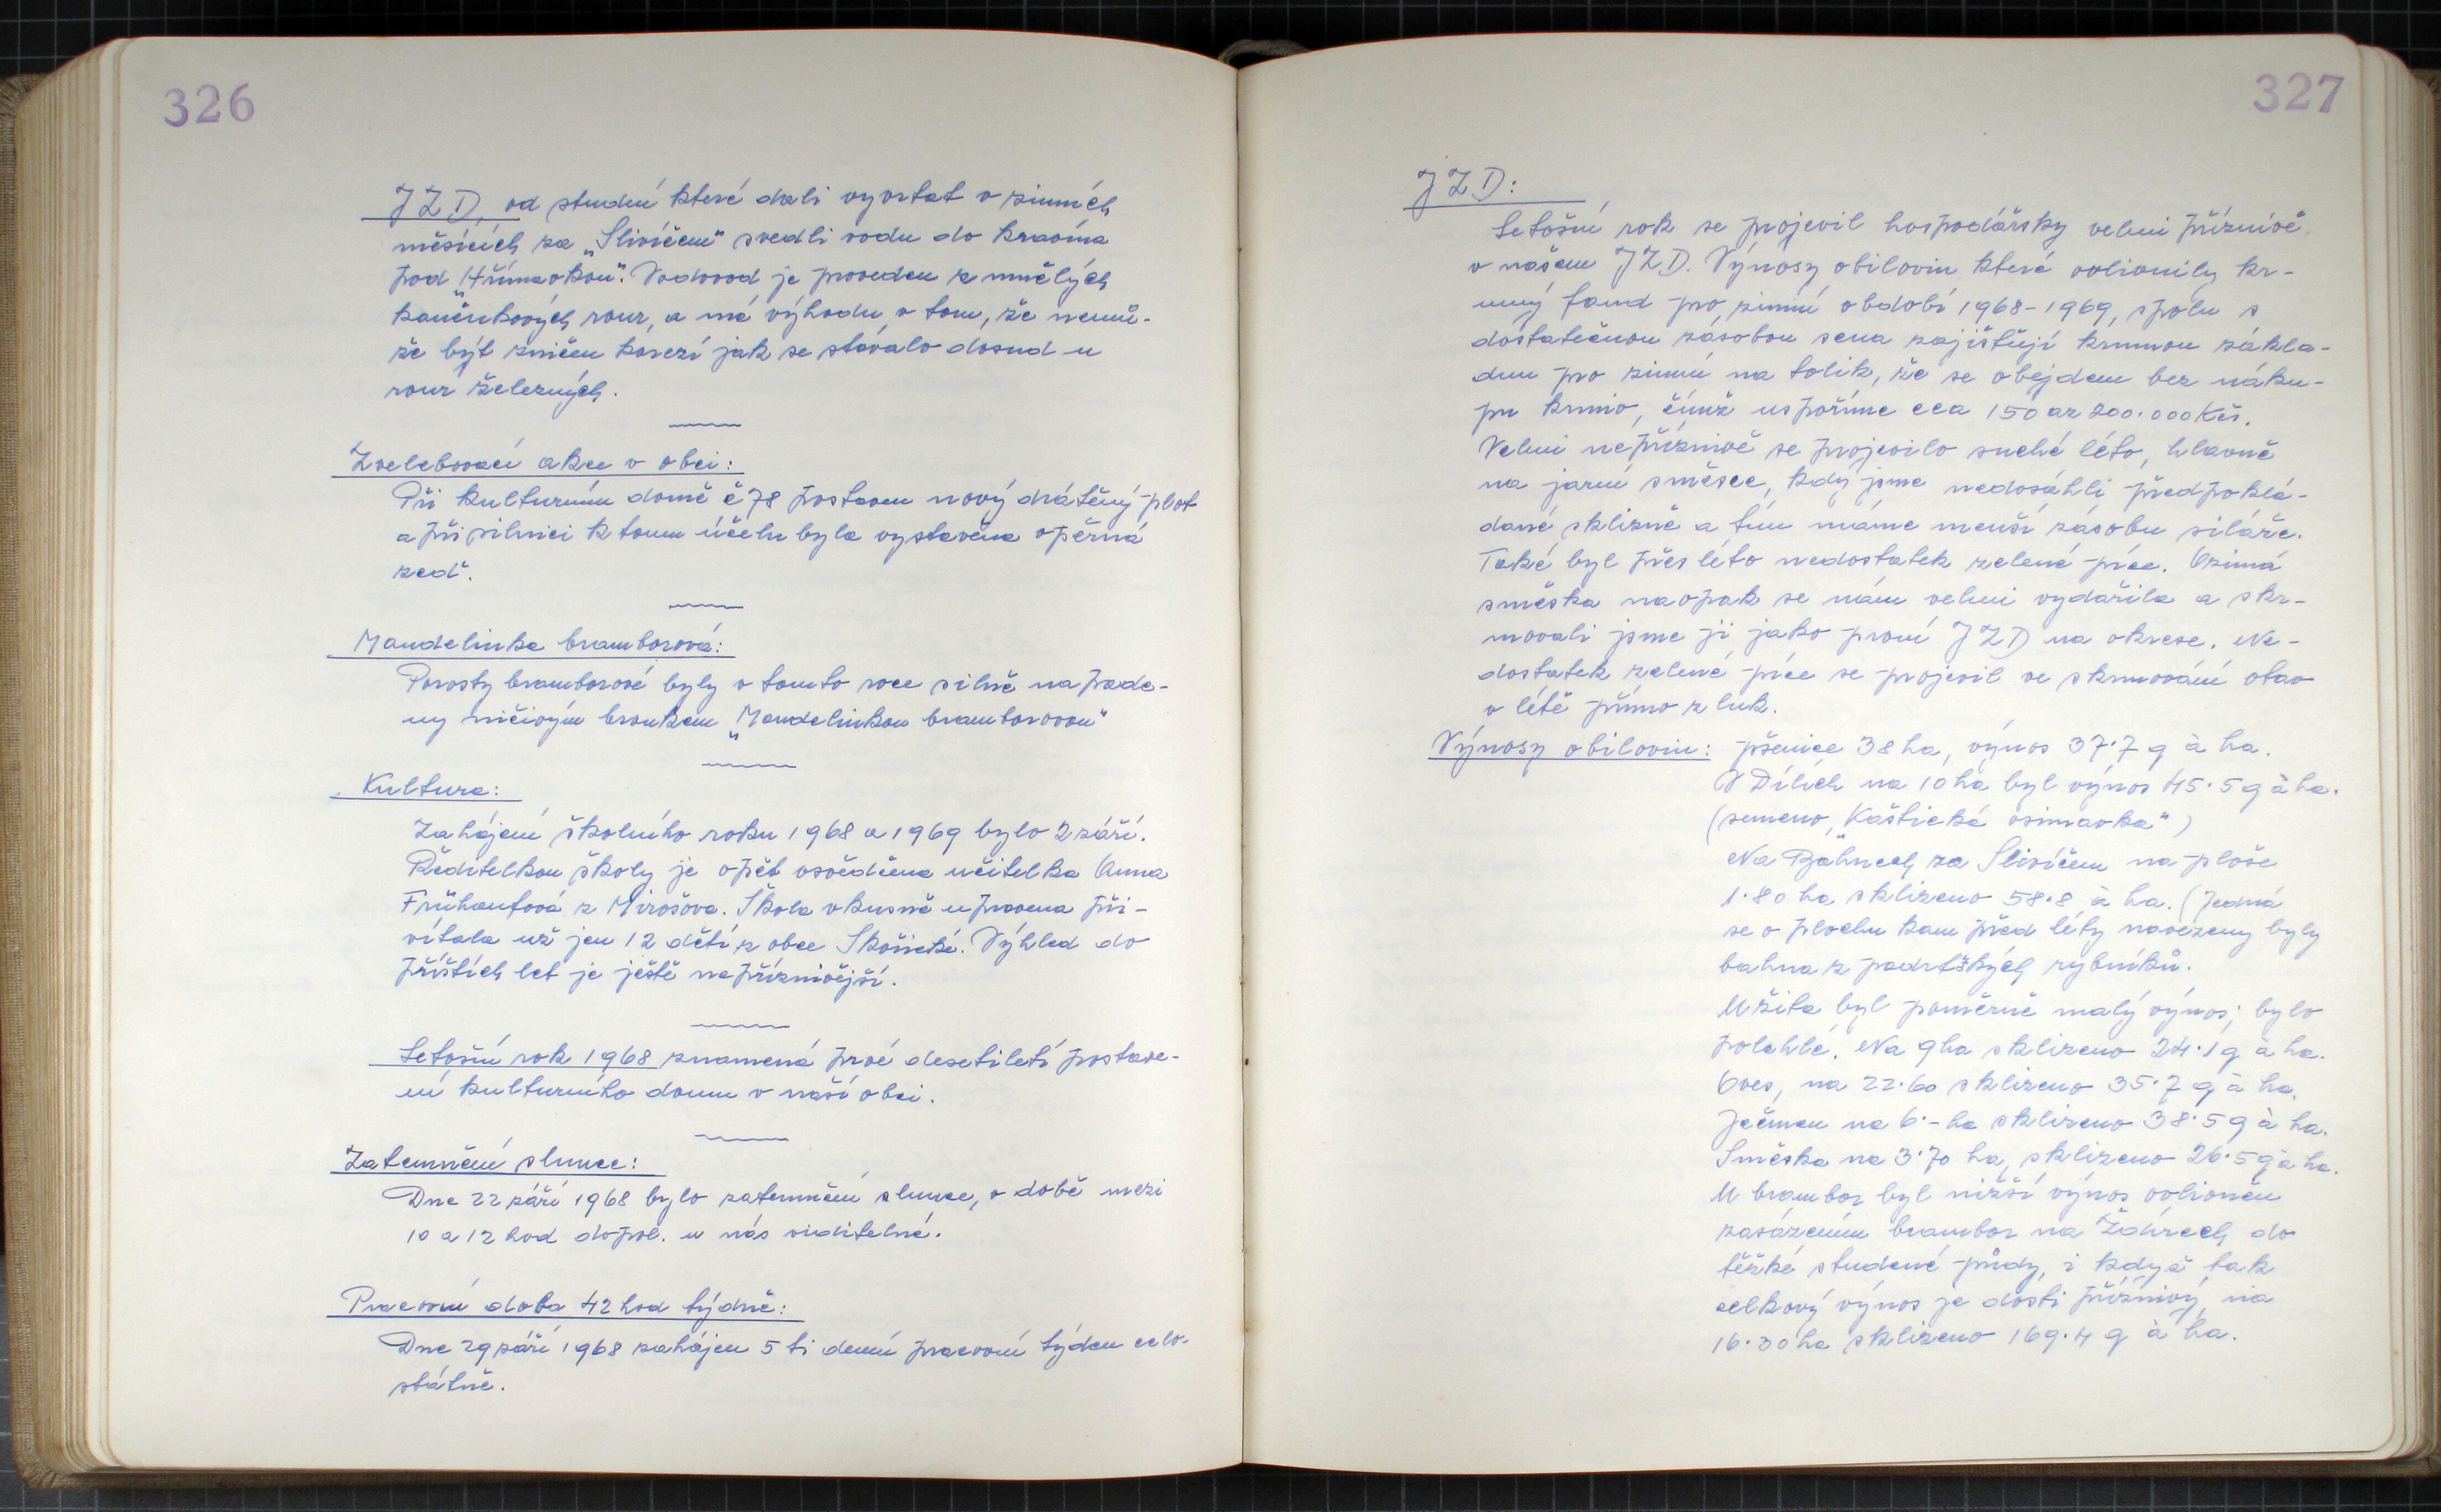 326
JZD, od studní které dali vyvrtat v zimních
měsících za „Slivíčem" svedli vodu do kravína
pod „Hřímavkou". Vodovod je proveden z umělých
kaučukových rour, a má výhodu v tom, že nemů-
že být zničen korozí jak se stávalo dosud u
rour železných.
Zvelebovací akce v obci:
Při kulturním domě č 78 postaven nový drátěný plot
a při silnici k tomu účelu byla vystavěna opěrná
zeď.
Mandelinka bramborová:
Porosty bramborové byly v tomto roce silně napade-
ny ničivým broukem „Mandelinkou bramborovou"
Kultura:
Zahájení školního roku 1968 a 1969 bylo 2 září.
Ředitelkou školy je opět osvědčena učitelka Anna
Frühaufová z Mirošova. Škola vkusně upravena při-
vítala už jen 12 dětí z obce Skořické. Výhled do
příštích let je ještě nepříznivější.
Letošní rok 1968 znamená prvé desetiletí postave-
ní kulturního domu v naší obci.
Zatemnění slunce:
Dne 22 září 1968 bylo zatemnění slunce, v době mezi
10 a 12 hod dopol. u nás viditelné.
Pracovní doba 42 hod týdně:
Dne 29 září 1968 zahájen 5 ti denní pracovní týden celo-
státně.
327
JZD:
Letošní rok se projevil hospodářsky velmi příznivě
v našem JZD. Výnosy obilovin které ovlivnily kr-
mný fond pro zimní období 1968-1969, spolu s
dostatečnou zásobou sena zajištují krmnou zákla-
dnu pro zimní na tolik, že se obejdem bez náku-
pu krmiv, čímž uspoříme cca 150 az 200.000 Kčs.
Velmi nepříznivě se projevilo suché léto, hlavně
na jarní směsce, kdy jsme nedosáhli předpoklá-
dané sklizně a tím máme menší zásobu siláže.
Také byl přes léto nedostatek zelené píce. Ozimá
směska naopak se nám velmi vydařila a skr-
movali jsme ji jako první JZD na okrese. Ne-
dostatek zelené píce se projevil ve skrmování otav
v létě přímo z luk.
Výnosy obilovin: pšenice 38 ha, výnos 37·7 q à ha.
V Dílích na 10 ha byl výnos 45·5 q à ha.
(semeno „Kaštická osinavka")
Na Bahnech za Slivíčem na ploše
1·80 ha sklizeno 58·8 à ha. (Jedná
se o plochu kam před léty navezeny byly
bahna z padrtských rybníků.
U žita byl poměrně malý výnos; bylo
polehlé. Na 9 ha sklizeno 24·1 q à ha.
Oves, na 22·60 sklizeno 35·7 q à ha.
Ječmen na 6·- ha sklizeno 38·5 q à ha.
Směska na 3·70 ha, sklizeno 26·5 q à ha.
U brambor byl nižší výnos ovlivněn
zasázením brambor na Ždírech do
těžké studené půdy, i když tak
celkový výnos je dosti příznivý, na
16·30 ha sklizeno 169·4 q à ha.